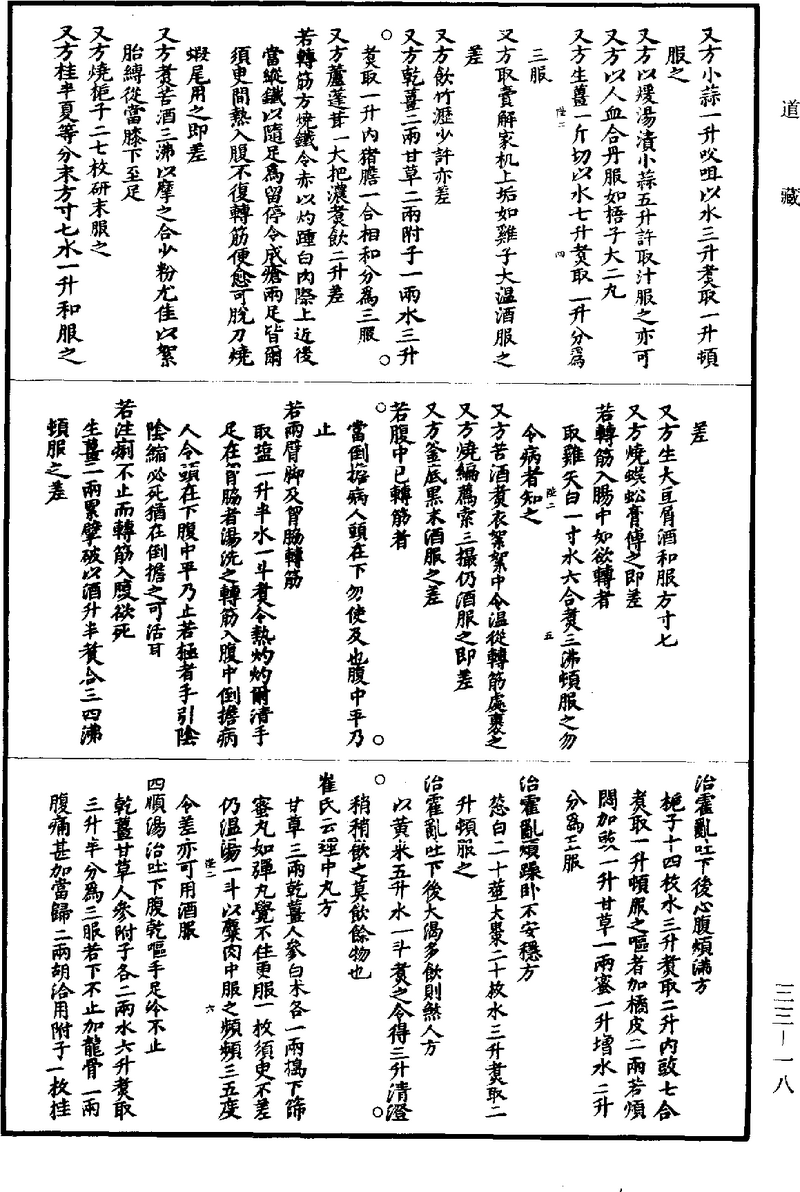 道藏
三三—一八
又方小蒜一升㕮咀以水三升煑取一升頓
服之
又方以煖湯漬小蒜五升許取汁服之亦可
又方以人血合丹服如梧子大二丸
又方生薑一斤切以水七升煑取一升分爲
陛二
四
三服
又方取賣解家机上垢如雞子大温酒服之
差
又方飲竹瀝少許亦差
又方乾薑二兩甘草二兩附子一兩水三升
煑取一升内猪膽一合相和分爲三服
又方蘆蓬茸一大把濃煑飲二升差
若轉筋方燒鐵令赤以灼踵白肉際上近後
當縱鐵以隨足爲留停令成瘡兩足皆爾
須臾間熱入腹不復轉筋便愈可脫刀燒
蝦尾用之即差
又方煑苦酒三沸以摩之合少粉尤佳以絮
胎縛從當膝下至足
又方燒梔子二七枚研末服之
又方桂半夏等分末方寸匕水一升和服之
差
又方生大豆屑酒和服方寸匕
又方燒蜈蚣膏傅之即差
若轉筋入腸中如欲轉者
取雞矢白一寸水六合煑三沸頓服之勿
陛二
五
令病者知之
又方苦酒煑衣絮絮中令温從轉筋處裹之
又方燒編薦索三撮仍酒服之即差
又方釜底黑末酒服之差
若腹中已轉筋者
當倒擔病人頭在下勿使及也腹中平乃
止
若兩臂脚及胷脇轉筋
取鹽一升半水一斗煑令熱灼灼爾漬手
足在胷脇者湯洗之轉筋入腹中倒擔病
人令頭在下腹中平乃止若極者手引陰
陰縮必死猶在倒擔之可活耳
若注痢不止而轉筋入腹欲死
生薑二兩累擘破以酒升半煑合三四沸
頓服之差
治霍亂吐下後心腹煩滿方
梔子十四枚水三升煑取二升内豉七合
煑取一升頓服之嘔者加橘皮二兩若煩
悶加豉一升甘草一兩蜜一升增水二升
分爲三服
治霍亂煩躁卧不安穩方
葱白二十莖大棗二十枚水三升煑取二
升頓服之
治霍亂吐下後大渴多飲則煞人方
以黄米五升水一斗煑之令得三升清澄
稍稍飲之莫飲餘物也
崔氏云理中丸方
甘草三兩乾薑人參白术各一兩搗下篩
蜜丸如彈丸覺不住更服一枚須臾不差
仍温湯一斗以麋肉中服之頻頻三五度
陛二
六
令差亦可用酒服
四順湯治吐下腹乾嘔手足冷不止
乾薑甘草人參附子各二兩水六升煑取
三升半分爲三服若下不止加龍骨一兩
腹痛甚加當歸二兩胡洽用附子一枚桂